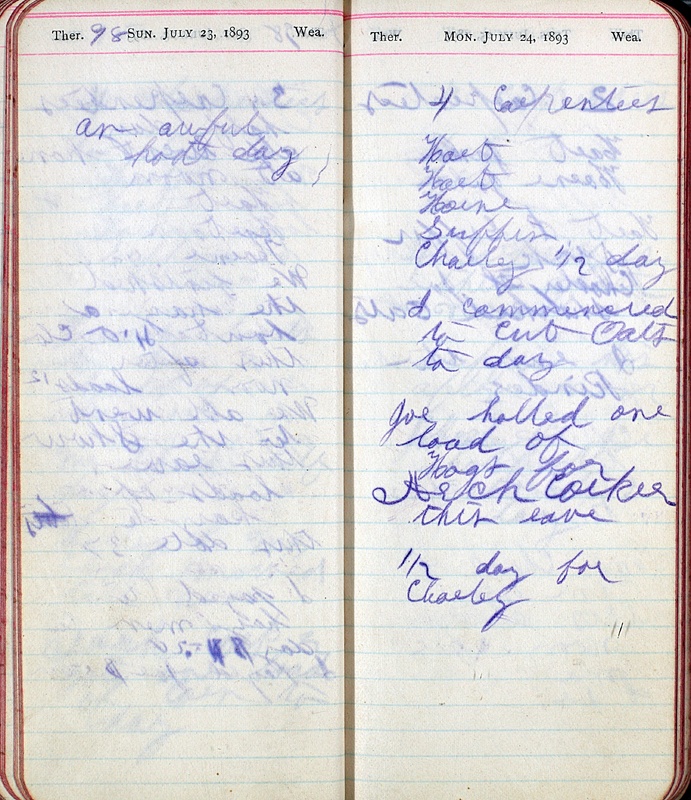 Ther. 98 Sun. July 23, 1893 Wea.
an awful
hot day
Ther. Mon. July 24, 1893 Wea.
4 Carpenters
Hart
Hart
Supper
Charley 1/2 day
I commenced
to cut Oats
to day
Joe halled one
load of
Hogs for
this eave
1/2 day for
Charley